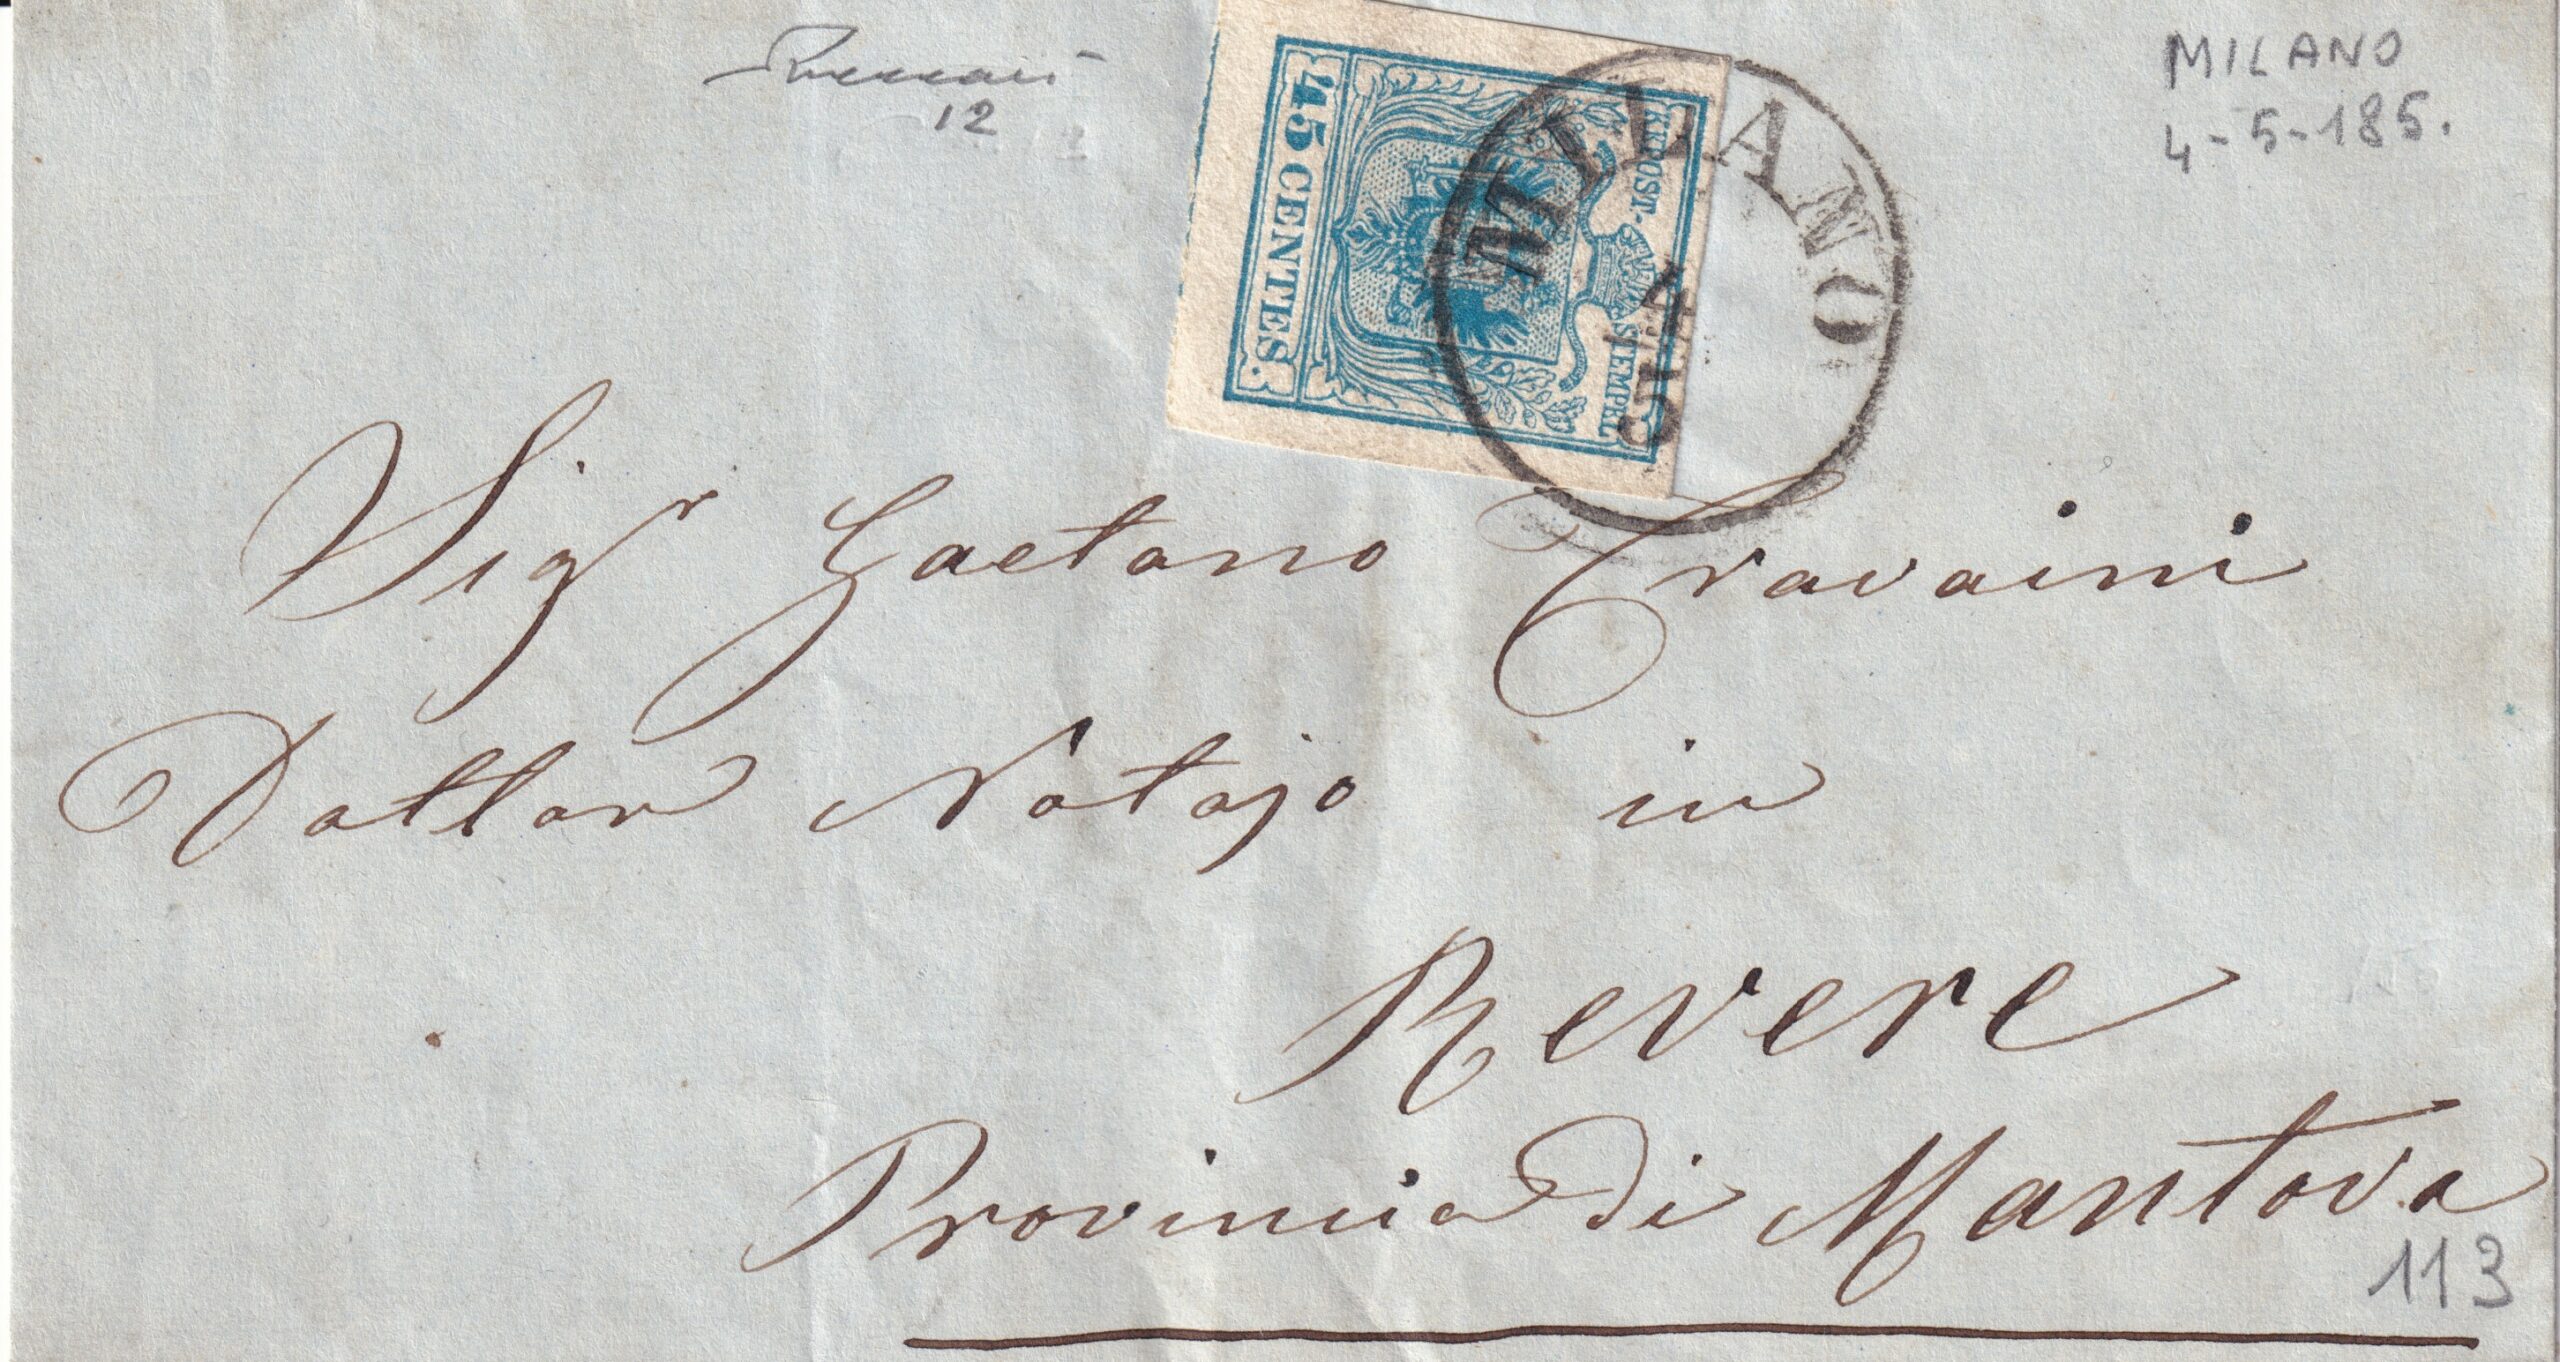 12
MILANO
4-5-185.
KKPOST-STEMPEL
45 CENTES.
MILANO
4/5
Sigr Gaetano Travaini
Dottor Notajo in
Revere
Provincia di Mantova
113